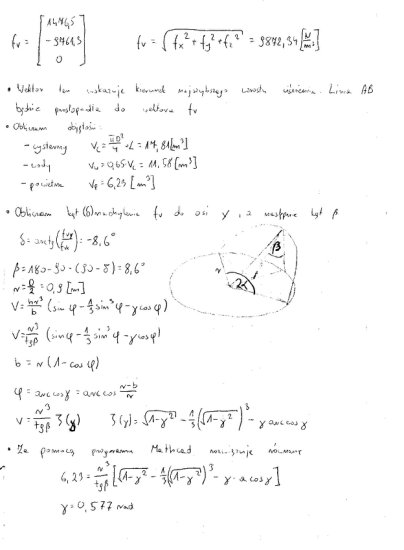 f_v = [1474,5 -9761,3 0] f_v = √(f_x² + f_y² + f_z²) = 9872,34 [N/m³]
• Wektor ten wskazuje kierunek najszybszego wzrostu ciśnienia. Linia AB
będzie prostopadła do wektora f_v
• Obliczam objętości:
– cysterny V_c = πD²/4 · L = 17,81 [m³]
– wody V_w = 0,65 V_c = 11,58 [m³]
– powietrza V_p = 6,23 [m³]
• Obliczam kąt (δ) nachylenia f_v do osi y, a następnie kąt β
δ = arctg(f_vy/f_vx) = -8,6°
β = 180 - 90 - (90 - δ) = 8,6°
r = D/2 = 0,9 [m]
β
r
2α
V = hr²/b (sin φ - 1/3 sin³ φ - φ cos φ)
V = r³/tgβ (sin φ - 1/3 sin³ φ - φ cos φ)
b = r (1 - cos φ)
φ = arccos γ = arccos (r-b)/r
V = r³/tgβ ζ(γ) ζ(γ) = √(1-γ²) - 1/3 (√(1-γ²))³ - γ arccos γ
• Za pomocą programu Mathcad rozwiązuję równanie
6,23 = r³/tgβ [√(1-γ²) - 1/3 (√(1-γ²))³ - γ · acosγ]
γ = 0,577 rad